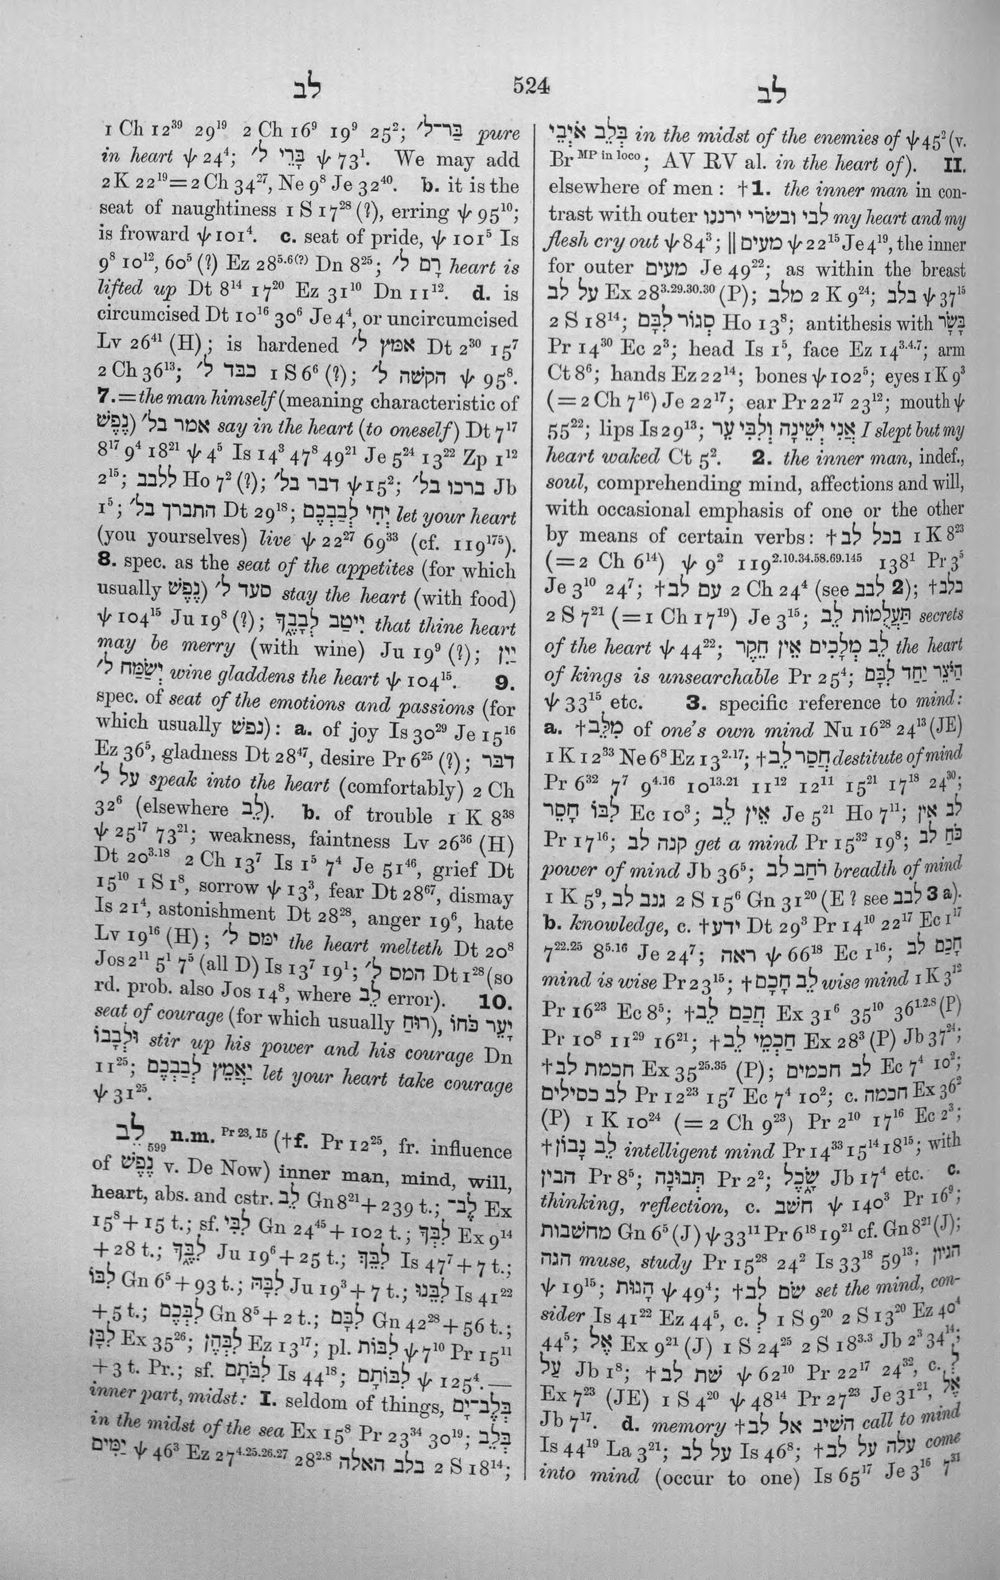 לב
524
לב
1 Ch 12³⁹ 29¹⁹ 2 Ch 16⁹ 19⁹ 25²; בַּר־ל׳ pure
in heart ψ 24⁴; בָּרֵי ל׳ ψ 73¹. We may add
2 K 22¹⁹=2 Ch 34²⁷, Ne 9⁸ Je 32⁴⁰. b. it is the
seat of naughtiness 1 S 17²⁸ (?), erring ψ 95¹⁰;
is froward ψ 101⁴. c. seat of pride, ψ 101⁵ Is
9⁸ 10¹², 60⁵ (?) Ez 28⁵·⁶⁽?⁾ Dn 8²⁵; רָם ל׳ heart is
lifted up Dt 8¹⁴ 17²⁰ Ez 31¹⁰ Dn 11¹². d. is
circumcised Dt 10¹⁶ 30⁶ Je 4⁴, or uncircumcised
Lv 26⁴¹ (H); is hardened אמץ ל׳ Dt 2³⁰ 15⁷
2 Ch 36¹³; כבד ל׳ 1 S 6⁶ (?); הקשה ל׳ ψ 95⁸.
7.=the man himself (meaning characteristic of
נֶפֶשׁ) אמר בל׳ say in the heart (to oneself) Dt 7¹⁷
8¹⁷ 9⁴ 18²¹ ψ 4⁵ Is 14³ 47⁸ 49²¹ Je 5²⁴ 13²² Zp 1¹²
2¹⁵; ללבב Ho 7² (?); דבר בל׳ ψ 15²; ברכו בל׳ Jb
1⁵; התברך בל׳ Dt 29¹⁸; יְחִי לְבַבְכֶם let your heart
(you yourselves) live ψ 22²⁷ 69³³ (cf. 119¹⁷⁵).
8. spec. as the seat of the appetites (for which
usually נֶפֶשׁ) סעד ל׳ stay the heart (with food)
ψ 104¹⁵ Ju 19⁸ (?); יִיטַב לְבָבֶךָ that thine heart
may be merry (with wine) Ju 19⁹ (?); יַיִן
יְשַׂמַּח ל׳ wine gladdens the heart ψ 104¹⁵. 9.
spec. of seat of the emotions and passions (for
which usually נפשׁ): a. of joy Is 30²⁹ Je 15¹⁶
Ez 36⁵, gladness Dt 28⁴⁷, desire Pr 6²⁵ (?); דבר
על ל׳ speak into the heart (comfortably) 2 Ch
32⁶ (elsewhere לֵב). b. of trouble 1 K 8³⁸
ψ 25¹⁷ 73²¹; weakness, faintness Lv 26³⁶ (H)
Dt 20³·¹⁸ 2 Ch 13⁷ Is 1⁵ 7⁴ Je 51⁴⁶, grief Dt
15¹⁰ 1 S 1⁸, sorrow ψ 13³, fear Dt 28⁶⁷, dismay
Is 21⁴, astonishment Dt 28²⁸, anger 19⁶, hate
Lv 19¹⁶ (H); ימס ל׳ the heart melteth Dt 20⁸
Jos 2¹¹ 5¹ 7⁵ (all D) Is 13⁷ 19¹; המס ל׳ Dt 1²⁸ (so
rd. prob. also Jos 14⁸, where לֵב error). 10.
seat of courage (for which usually רוּחַ), יָעֵר כֹּחוֹ
וּלְבָבוֹ stir up his power and his courage Dn
11²⁵; יַאֲמֵץ לְבַבְכֶם let your heart take courage
ψ 31²⁵.
לֵב ₅₉₉ n.m. Pr 23, 15 (†f. Pr 12²⁵, fr. influence
of נֶפֶשׁ v. De Now) inner man, mind, will,
heart, abs. and cstr. לֵב Gn 8²¹+239 t.; לֶב־ Ex
15⁸+15 t.; sf. לִבִּי Gn 24⁴⁵+102 t.; לִבְּךָ Ex 9¹⁴
+28 t.; לִבֶּךָ Ju 19⁶+25 t.; לִבֵּךְ Is 47⁷+7 t.;
לִבּוֹ Gn 6⁵+93 t.; לִבָּהּ Ju 19³+7 t.; לִבֵּנוּ Is 41²²
+5 t.; לִבְּכֶם Gn 8⁵+2 t.; לִבָּם Gn 42²⁸+56 t.;
לִבָּן Ex 35²⁶; לִבְּהֶן Ez 13¹⁷; pl. לִבּוֹת ψ 7¹⁰ Pr 15¹¹
+3 t. Pr.; sf. לִבֹּתָם Is 44¹⁸; לִבּוֹתָם ψ 125⁴.—
inner part, midst: I. seldom of things, בְּלֶב־יָם
in the midst of the sea Ex 15⁸ Pr 23³⁴ 30¹⁹; בְּלֵב
יַמִּים ψ 46³ Ez 27⁴·²⁵·²⁶·²⁷ 28²·⁸ בלב האלה 2 S 18¹⁴;
בְּלֵב אֹיְבֵי in the midst of the enemies of ψ 45² (v.
Br MP in loco; AV RV al. in the heart of). II.
elsewhere of men: †1. the inner man in con-
trast with outer לבי ובשׂרי ירננו my heart and my
flesh cry out ψ 84³; ‖ מעים ψ 22¹⁵ Je 4¹⁹, the inner
for outer מעים Je 49²²; as within the breast
על לב Ex 28³·²⁹·³⁰·³⁰ (P); מלב 2 K 9²⁴; בלב ψ 37¹⁵
2 S 18¹⁴; סְגוֹר לִבָּם Ho 13⁸; antithesis with בָּשָׂר
Pr 14³⁰ Ec 2³; head Is 1⁵, face Ez 14³·⁴·⁷; arm
Ct 8⁶; hands Ez 22¹⁴; bones ψ 102⁵; eyes 1 K 9³
(=2 Ch 7¹⁶) Je 22¹⁷; ear Pr 22¹⁷ 23¹²; mouth ψ
55²²; lips Is 29¹³; אֲנִי יְשֵׁינָה וְלִבִּי עֵר I slept but my
heart waked Ct 5². 2. the inner man, indef.,
soul, comprehending mind, affections and will,
with occasional emphasis of one or the other
by means of certain verbs: †בכל לב 1 K 8²³
(=2 Ch 6¹⁴) ψ 9² 119²·¹⁰·³⁴·⁵⁸·⁶⁹·¹⁴⁵ 138¹ Pr 3⁵
Je 3¹⁰ 24⁷; †עם לב 2 Ch 24⁴ (see לבב 2); †כלב
2 S 7²¹ (=1 Ch 17¹⁹) Je 3¹⁵; תַּעֲלֻמוֹת לֵב secrets
of the heart ψ 44²²; לֵב מְלָכִים אֵין חֵקֶר the heart
of kings is unsearchable Pr 25⁴; הַיֹּצֵר יַחַד לִבָּם
ψ 33¹⁵ etc. 3. specific reference to mind:
a. †מִלֵּב of one's own mind Nu 16²⁸ 24¹³ (JE)
1 K 12³³ Ne 6⁸ Ez 13²·¹⁷; †חֲסַר לֵב destitute of mind
Pr 6³² 7⁷ 9⁴·¹⁶ 10¹³·²¹ 11¹² 12¹¹ 15²¹ 17¹⁸ 24³⁰;
לִבּוֹ חָסֵר Ec 10³; אֵין לֵב Je 5²¹ Ho 7¹¹; לב אַיִן
Pr 17¹⁶; קנה לב get a mind Pr 15³² 19⁸; כֹּחַ לב
power of mind Jb 36⁵; רֹחַב לב breadth of mind
1 K 5⁹, גנב לב 2 S 15⁶ Gn 31²⁰ (E ? see לבב 3 a).
b. knowledge, c. ידע† Dt 29³ Pr 14¹⁰ 22¹⁷ Ec 1¹⁷
7²²·²⁵ 8⁵·¹⁶ Je 24⁷; ראה ψ 66¹⁸ Ec 1¹⁶; חָכַם לב
mind is wise Pr 23¹⁵; †לֵב חָכָם wise mind 1 K 3¹²
Pr 16²³ Ec 8⁵; †חֲכַם לֵב Ex 31⁶ 35¹⁰ 36¹·²·⁸ (P)
Pr 10⁸ 11²⁹ 16²¹; †חַכְמֵי לֵב Ex 28³ (P) Jb 37²⁴;
†חכמת לב Ex 35²⁵·³⁵ (P); לב חכמים Ec 7⁴ 10²;
לב כסילים Pr 12²³ 15⁷ Ec 7⁴ 10²; c. חכמה Ex 36²
(P) 1 K 10²⁴ (=2 Ch 9²³) Pr 2¹⁰ 17¹⁶ Ec 2³;
†לֵב נָבוֹן intelligent mind Pr 14³³ 15¹⁴ 18¹⁵; with
הבין Pr 8⁵; תְּבוּנָה Pr 2²; שֶׂכֶל Jb 17⁴ etc. c.
thinking, reflection, c. חשׁב ψ 140³ Pr 16⁹;
מחשׁבות Gn 6⁵ (J) ψ 33¹¹ Pr 6¹⁸ 19²¹ cf. Gn 8²¹ (J);
הגה muse, study Pr 15²⁸ 24² Is 33¹⁸ 59¹³; הגיון
ψ 19¹⁵; הָגוּת ψ 49⁴; †שׂם לב set the mind, con-
sider Is 41²² Ez 44⁵, c. לְ 1 S 9²⁰ 2 S 13²⁰ Ez 40⁴
44⁵; אֶל Ex 9²¹ (J) 1 S 24²⁵ 2 S 18³·³ Jb 2³ 34¹⁴;
עַל Jb 1⁸; †שׁת לב ψ 62¹⁰ Pr 22¹⁷ 24³², c. לְ
Ex 7²³ (JE) 1 S 4²⁰ ψ 48¹⁴ Pr 27²³ Je 31²¹, אֶל
Jb 7¹⁷. d. memory †השׁיב אל לב call to mind
Is 44¹⁹ La 3²¹; על לב Is 46⁸; †עלה על לב come
into mind (occur to one) Is 65¹⁷ Je 3¹⁶ 7³¹